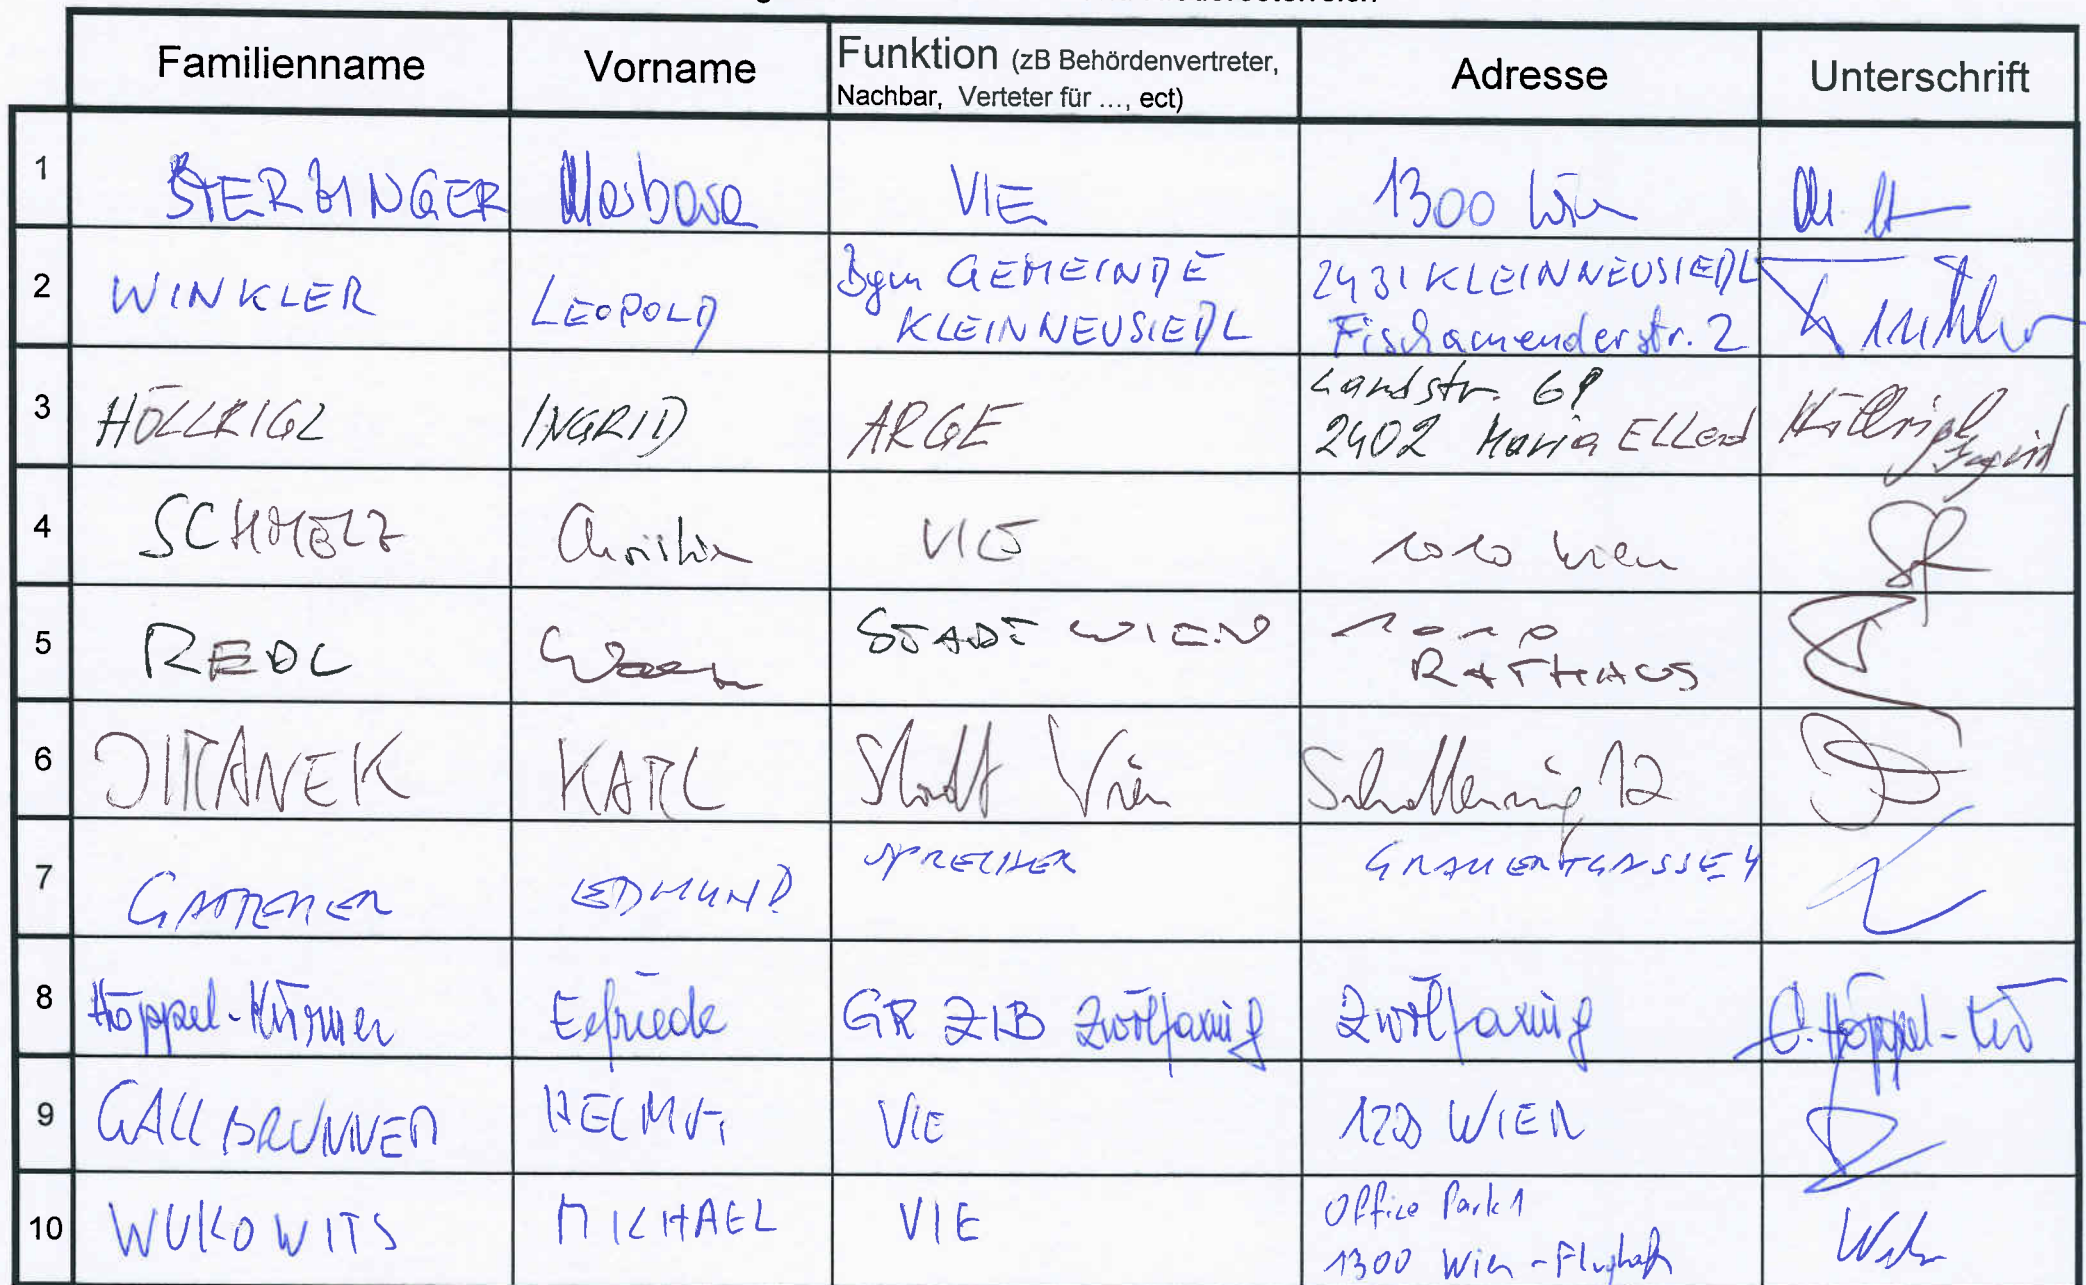 Familienname Vorname Funktion (zB Behördenvertreter, Nachbar, Verteter für ..., ect) Adresse Unterschrift
1 STERZINGER VIE 1300 Wien
2 WINKLER LEOPOLD Bgm GEMEINDE KLEINNEUSIEDL 2431 KLEINNEUSIEDL Fischamenderstr. 2
3 HÖLLRIGL INGRID ARGE Landstr. 69 2402 Maria ELLend Höllrigl Ingrid
4 SCHMELZ Christian VIE 1010 Wien
5 REDL STADT WIEN 1010 RATHAUS
6 JIRANEK KARL Stadt Wien Schottenring 12
7 EDMUND SPRECHER
8 Höppel-Kürner Elfriede GR ZIB Zwölfaxing Zwölfaxing E. Höppel-Kü
9 GALLBRUNNER HELMUT VIE WIEN
10 WUKOWITS MICHAEL VIE Office Park 1 1300 Wien - Flughafen